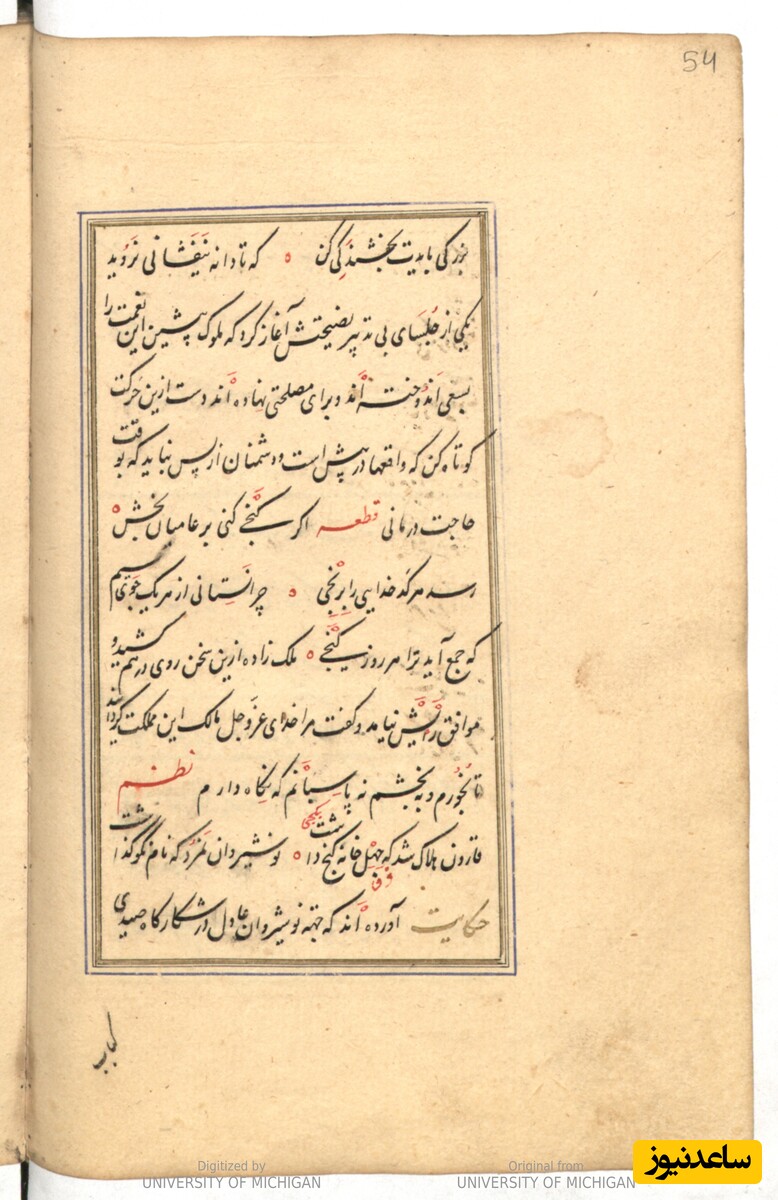 54
بزرگی بایدت بخشندگی کن ه که تا دانه نیفشانی نروید
یکی از جلسای بی تدبیر نصیحتش آغاز کرد که ملوک پیشین این نعمت را
بسعی اندوخته اند و برای مصلحتی نهاده اند دست ازین حرکت
کوتاه کن که واقعها در پیش است و دشمنان از پس نباید که بوقت
حاجت درمانی قطعه اگر گنجی کنی بر عامیان بخش ه
رسد هر کدخدایی را برنجی ه چرا نستانی از هر یک جوی سیم
که جمع آید ترا هر روز گنجی ه ملک زاده ازین سخن روی درهم کشید و
موافق رایش نیامد و گفت مرا خدای عزوجل مالک این مملکت گردانید
تا بخورم و ببخشم نه پاسبانم که نگاه دارم نظم
قارون هلاک شد که چهل خانه گنج داشت ه نوشیروان نمرد که نام نکو گذاشت
حکایت آورده اند که جهة نوشیروان عادل در شکارگاه صیدی
کباب
Digitized by
UNIVERSITY OF MICHIGAN
Original from
UNIVERSITY OF MICHIGAN
ساعدنیوز